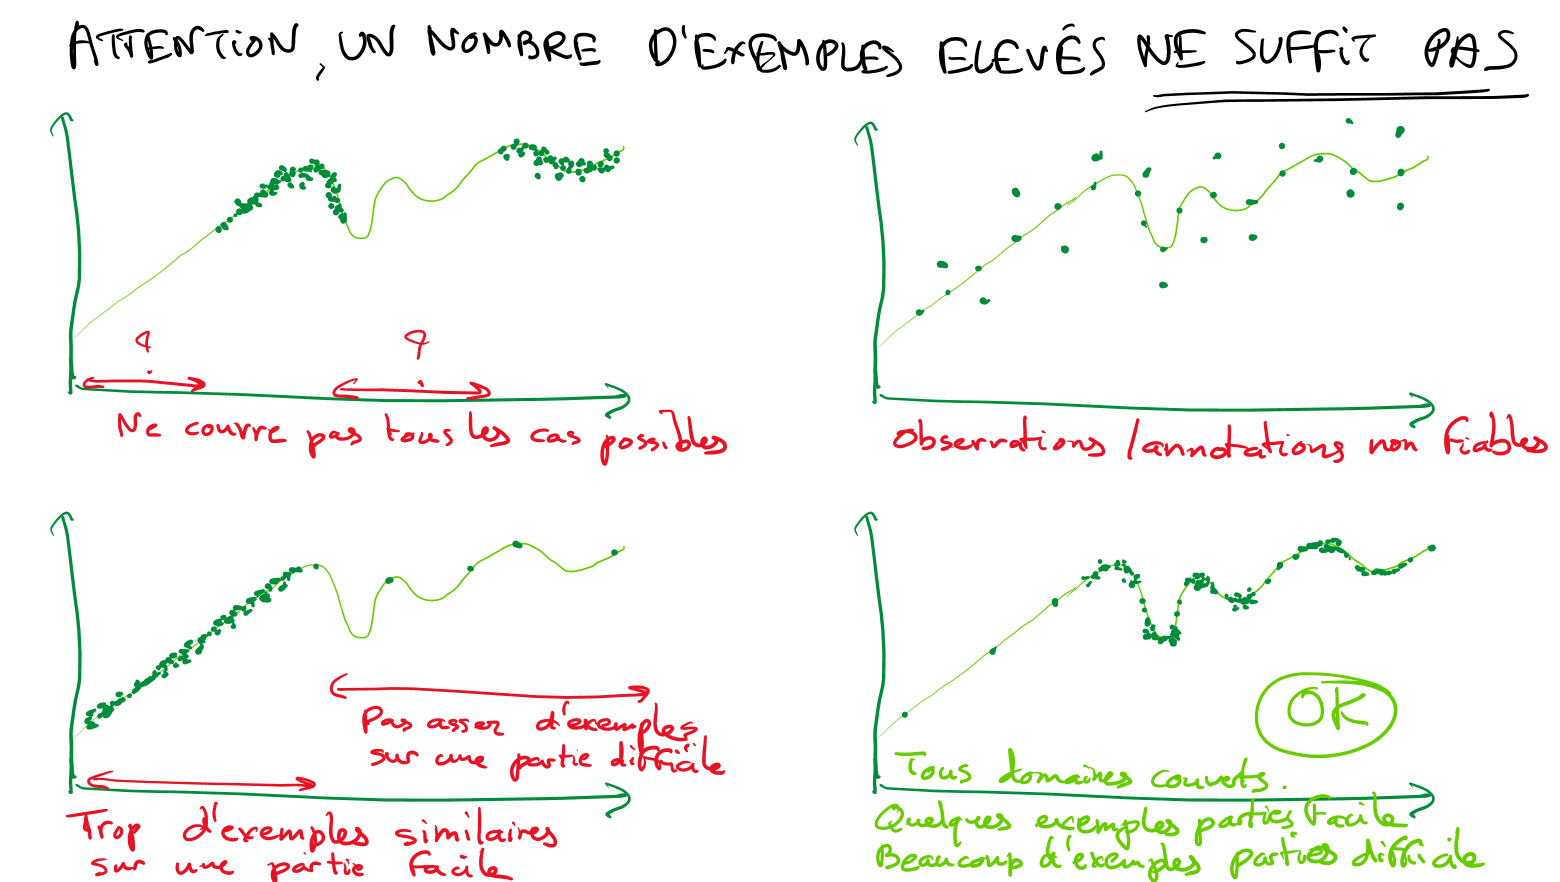 ATTENTION, UN NOMBRE D'EXEMPLES ELEVÉS NE SUFFIT PAS
? ?
Ne couvre pas tous les cas possibles
Observations / annotations non fiables
Pas assez d'exemples
sur une partie difficile
Trop d'exemples similaires
sur une partie facile
OK
Tous domaines couverts.
Quelques exemples parties facile
Beaucoup d'exemples parties difficile